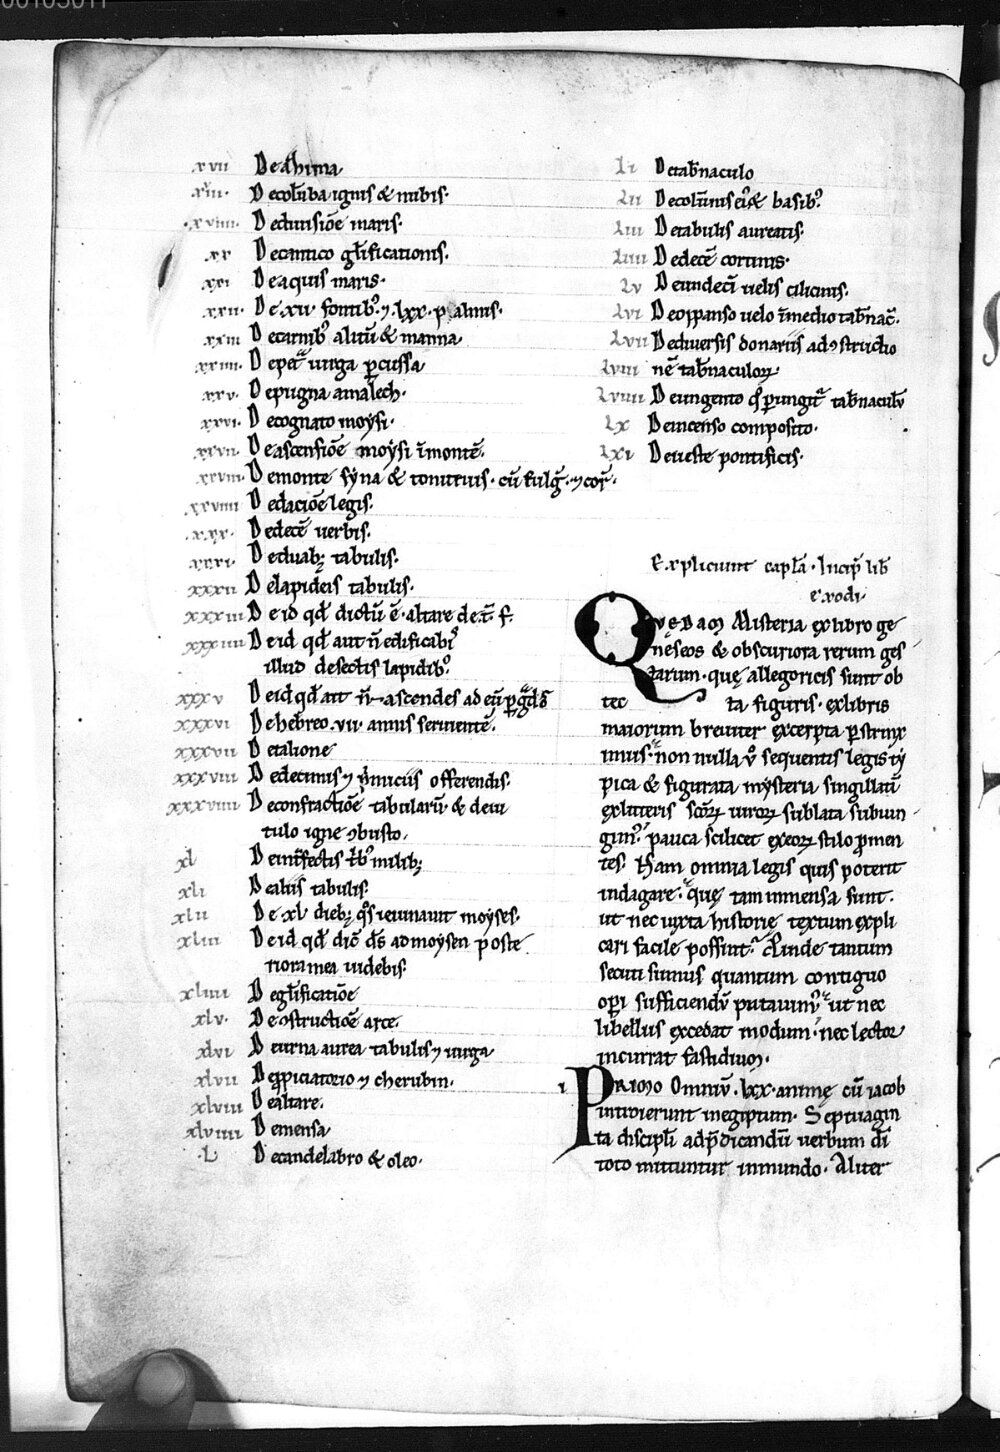 xvii De ethima
xviii. De colūba ignis & nubis.
.xviiii. De diuisiōe maris.
.xx De cantico gl̄ificationis.
xxi De aquis maris.
.xxii. De .xii. fontib; ⁊ .lxx. palmis.
xxiii De carnib; alitū & manna
.xxiiii. De petra uirga p̄cussa
.xxv. De pugna amalech.
.xxvi. De cognato moysi.
.xxvii. De ascensiōe moysi ī monte.
.xxviii. De monte syna & tonitruis. cū fulg̃. ⁊ cor̃.
.xxviiii De daciōe legis.
.xxx. De decē uerbis.
.xxxi. De duab; tabulis.
xxxii De lapideis tabulis.
xxxiii De id qd̄ dictū ē. altare de t̄. f.
xxxiiii De id qd̄ aut n̄ edificabit̄
illud de sectis lapidib;
xxxv De id qd̄ ait n̄ ascendes ad eū p̱ g̃d
xxxvi De hebreo .vii. annis seruente.
xxxvii De talione
xxxviii De decimis ⁊ p̄miciis offerendis.
xxxviiii De confractiōe tabularū & de ui
tulo igne ɔbusto.
xl De int̄fectis t̄b; milib;
xli De aliis tabulis.
xlii De .xl. dieb; qͦs ieiunauit moyses.
xliii De id qd̄ dic̄ ds̄ ad moysen poste
riora mea uidebis.
xliiii De gl̄ificatiōe
xlv. De ɔstructiōe arce.
xlvi De urna aurea tabulis ⁊ uirga
xlvii De p̱piciatorio ⁊ cherubin.
xlviii De altare.
xlviiii De mensa
.L De candelabro & oleo.
Li De tab̄naculo
Lii De colūnis ei; & basib;
Liii De tabulis aureatis.
Liiii De decē cortinis.
Lv De undecī uelis cilicinis.
Lvi De oppanso uelo ī medio tab̄nac̄.
Lvii De diuersis donariis ad ɔstructio
Lviii nē tab̄naculoꝝ.
Lviiii De ungento qͦ p̱ungit̄ tab̄naculū
Lx De incenso composito.
Lxi De ueste pontificis.
Expliciunt capl̄a. Incip̄ lib̄
exodi.
QVEDAM Misteria ex libro ge
neseos & obscuriora rerum ges
tarum. quę allegoricis sunt ob
tec ta figuris. ex libris
maiorum breuiter excerpta p̱strinx
imus. non nulla v̊ sequentis legis ty
pica & figurata mysteria singillatī
ex litteris scōꝝ uiroꝝ sublata subiun
gim;. pauca scilicet ex eoꝝ stilo p̱men
tes. Nam omnia legis quis poterit
indagare. quę tam inmensa sunt.
ut nec iuxta historię textum expli
cari facile possint. Proinde tantum
secuti sumus quantum contiguo
op̱i sufficiendū putauim;. ut nec
libellus excedat modum. nec lector
incurrat fastidium.
i PRIMO Omniū .lxx. animę cū iacob
introierunt in egiptum. Septuagin
ta discipl̄i ad p̄dicandū uerbum dī
toto mittuntur in mundo. Aliter